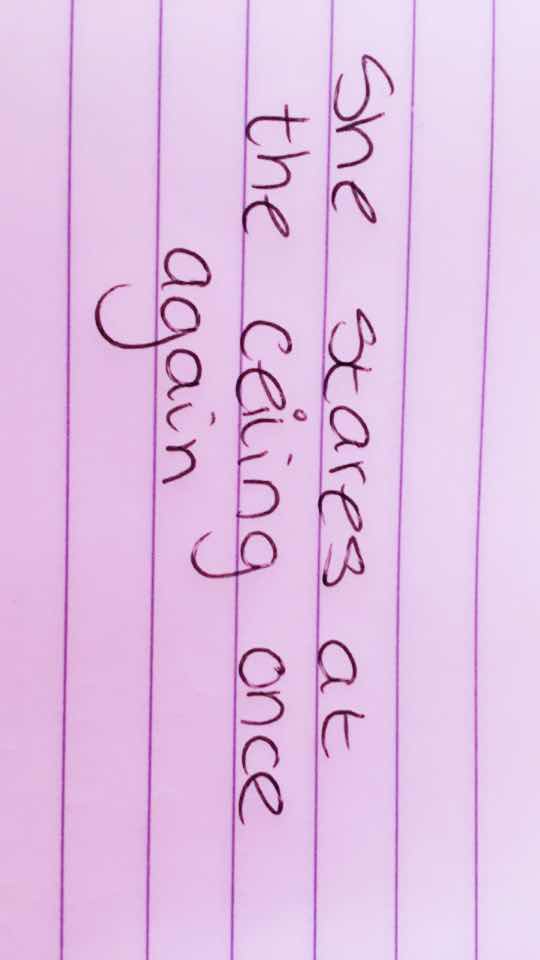 She stares at
the ceiing once
again